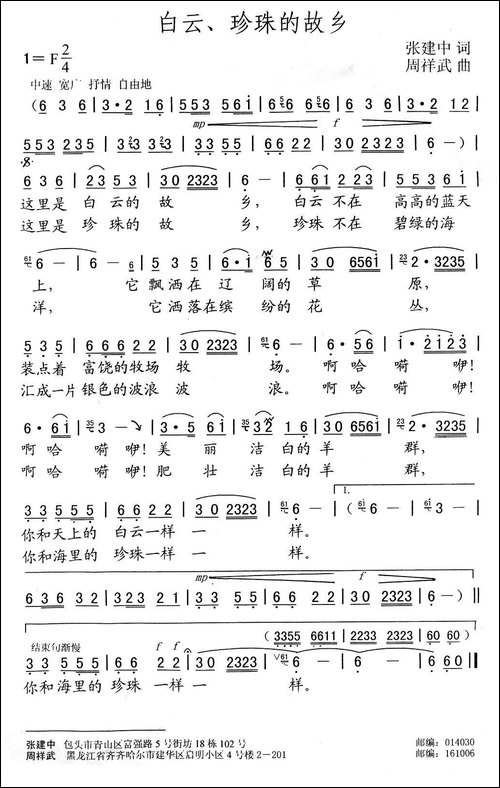 白云、珍珠的故乡
1=F 2/4
张建中 词
周祥武 曲
中速 宽广 抒情 自由地
(6 3 6 | 3·2 16 | 5553 5561 | 656 656 | 6 3 6 | 3·2 12 |
mp f
5553 235 | 335 335 | 335 55 | 66 22 | 30 2323 | 6 -) |
636 | 23 53 | 30 2323 | 6 - | 661 223 | 335 555 |
这里是 白云的 故 乡, 白云 不在 高高的蓝天
这里是 珍珠的 故 乡, 珍珠 不在 碧绿的海
6 - | 6 - 6 | 5 35 61 | 6 65 | 30 6561 | 2·3235 |
上, 它飘洒在辽 阔的 草 原,
洋, 它洒落在缤 纷的 花 丛,
535 | 666 22 | 30 2323 | 6 - | 6·56 | 1·2123 |
装点着 富饶的牧场 牧 场。 啊哈 嗬咿!
汇成一片 银色的波浪 波 浪。 啊哈 嗬咿!
6·61 | 3 - | 5561 | 32 22 | 30 6561 | 2·3235 |
啊哈 嗬咿! 美丽 洁白的 羊 群,
啊哈 嗬咿! 肥壮 洁白的 羊 群,
33 555 | 66 22 | 30 2323 | 6 - | (6 - | 3 - | 6 - |
1.
你和天上的 白云一样 一 样。
你和海里的 珍珠一样 一 样。
mp f
636 32 | 323 16 | 335 335 | 335 55 | 66 22 | 30 2323 | 6 -) ‖
结束句渐慢
f f
(3355 6611 | 2233 2323 | 60 60)
33 555 | 66 22 | 30 2323 | 6 - | 6 - | 6 - ‖
你和海里的 珍珠 一样 一 样。
张建中 包头市青山区富强路5号街坊18栋102号 邮编:014030
周祥武 黑龙江省齐齐哈尔市建华区启明小区4号楼2-201 邮编:161006